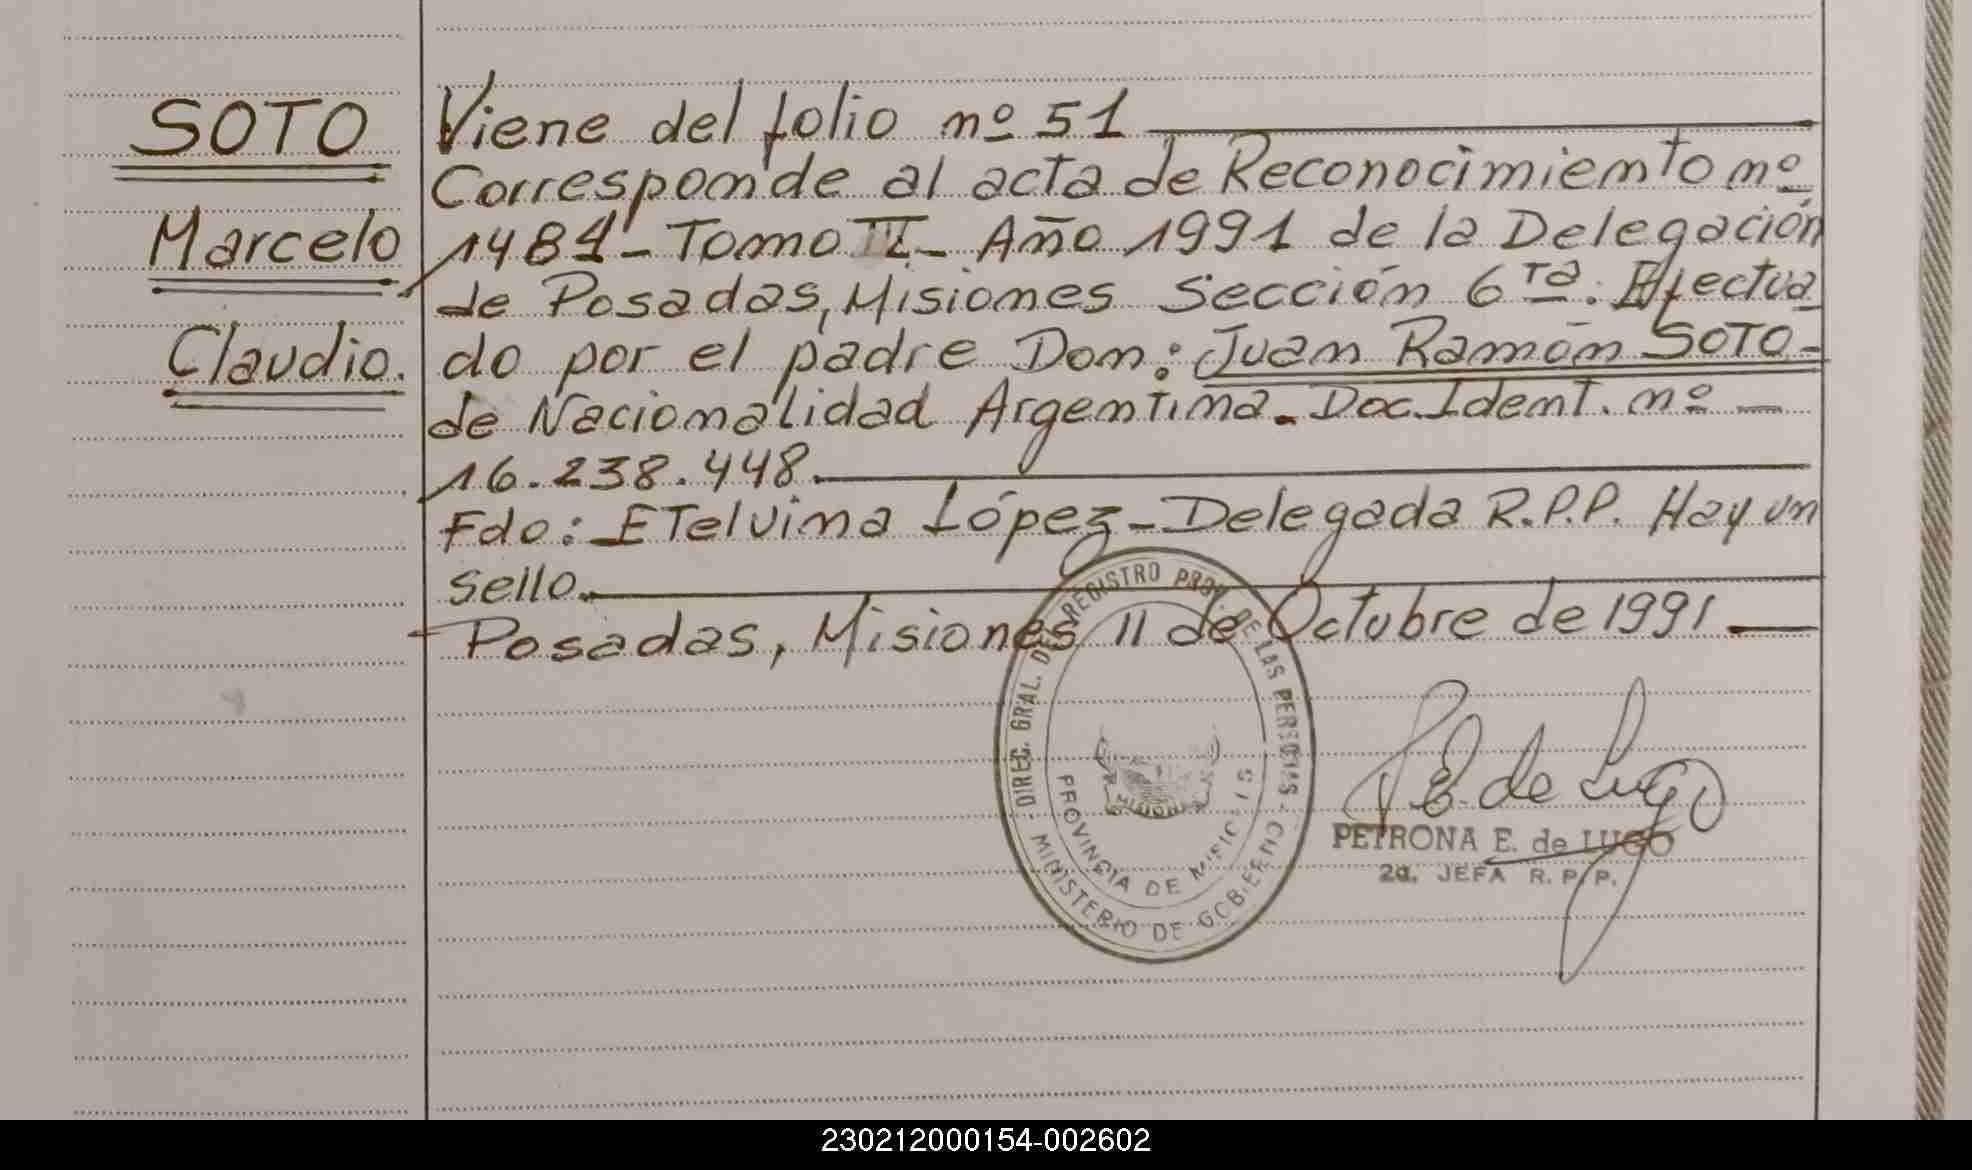 SOTO
Marcelo
Claudio.
Viene del folio nº 51
Corresponde al acta de Reconocimiento nº
1481 - Tomo IV - Año 1991 de la Delegación
de Posadas, Misiones Sección 6ta. Efectua
do por el padre Don: Juan Ramón SOTO -
de Nacionalidad Argentina. Doc. Ident. nº —
16.238.448.
Fdo: ETelvina López - Delegada R.P.P. Hay un
sello.
Posadas, Misiones 11 de Octubre de 1991 —
DIREC. GRAL. DEL REGISTRO PROV. DE LAS PERSONAS
MINISTERIO DE GOBIERNO
PROVINCIA DE MISIONES
MISIONES
P E. de Lugo
PETRONA E. de LUGO
2a. JEFA R. P. P.
230212000154-002602